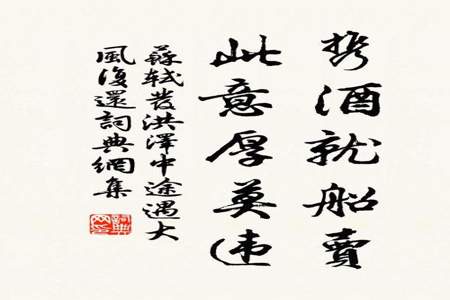 携酒就船賣
此意厚莫违
蘇軾發洪澤中途遇大
風復還詞典網集